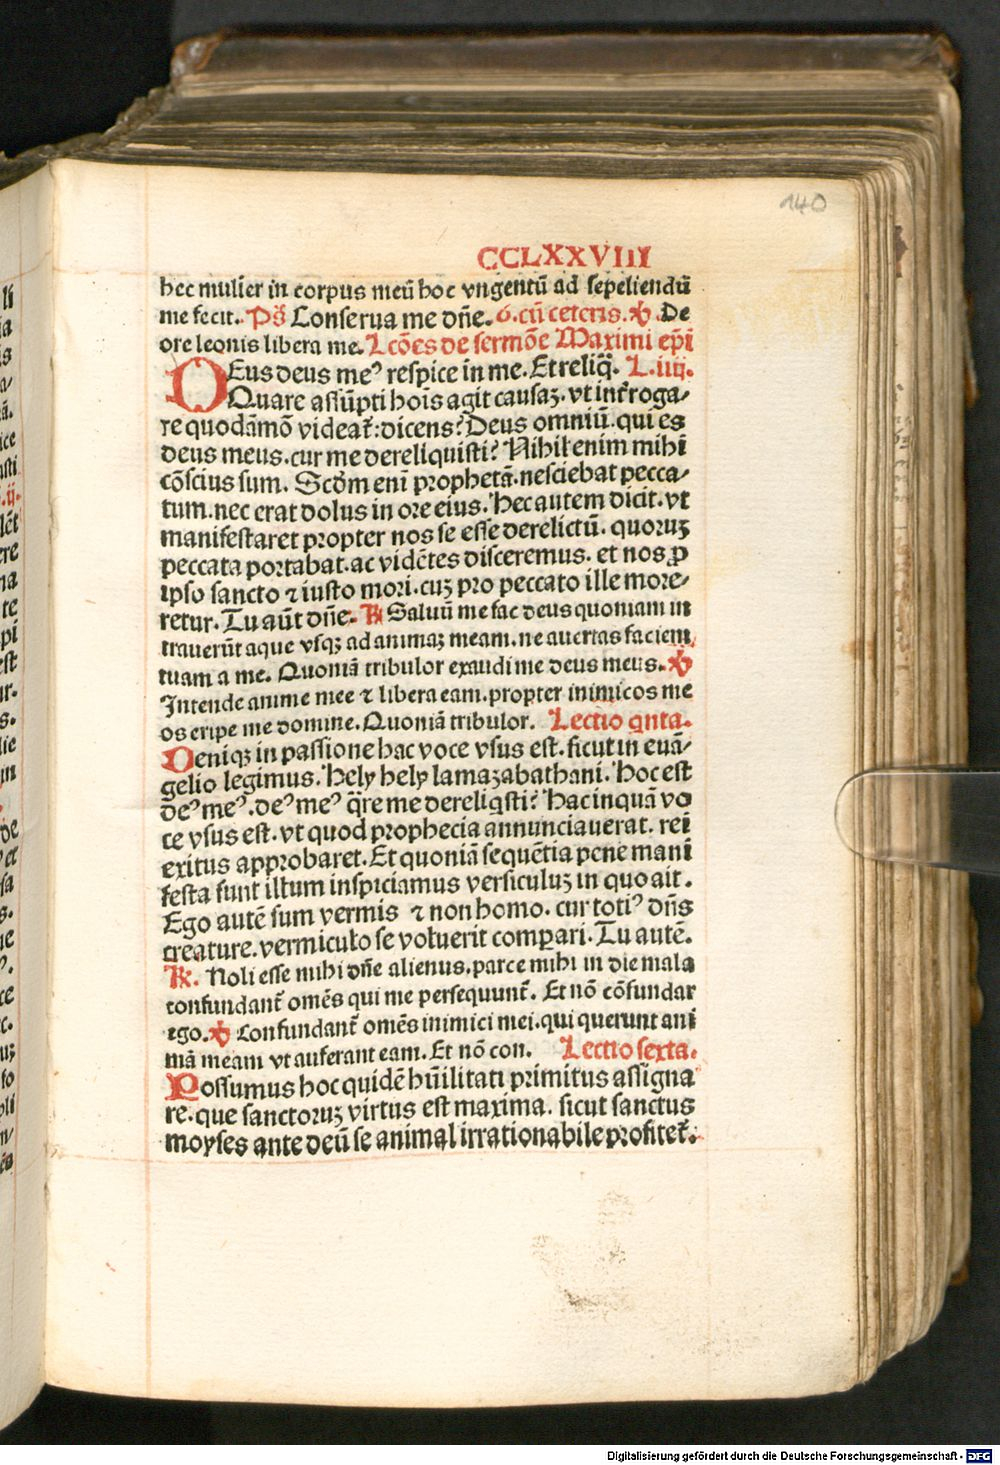 140
CCLXXVIII
hec mulier in corpus meū hoc vngentū ad sepeliendū
me fecit. Ps̄ Conserua me dn̄e. ō. cū ceteris. ꝟ. De
ore leonis libera me. Lcōes de sermōe Maximi ep̄i
DEus deus meꝰ respice in me. Et reliq̄. L. iiij.
Quare assūpti hoīs agit causaꝫ. vt int̄roga⸗
re quodāmō videat̄: dicens? Deus omniū. qui es
deus meus. cur me dereliquisti? Nihil enim mihi
cōscius sum. Scd̄m enī prophetā. nesciebat pecca⸗
tum. nec erat dolus in ore eius. Hec autem dicit. vt
manifestaret propter nos se esse derelictū. quoruꝫ
peccata portabat. ac vidētes disceremus. et nos ꝓ
ipso sancto ⁊ iusto mori. cuꝫ pro peccato ille more⸗
retur. Tu aūt dn̄e. ℟ Saluū me fac deus quoniam in
trauerūt aque vsqꝫ ad animaꝫ meam. ne auertas faciem
tuam a me. Quoniā tribulor exaudi me deus meus. ꝟ
Intende anime mee ⁊ libera eam. propter inimicos me
os eripe me domine. Quoniā tribulor. Lectio qnta.
Deniqꝫ in passione hac voce vsus est. sicut in euā⸗
gelio legimus. Hely hely lamazabathani. Hoc est
deꝰ meꝰ. deꝰ meꝰ q̄re me dereliq̄sti? Hac inquā vo
ce vsus est. vt quod prophecia annunciauerat. rei
exitus approbaret. Et quoniā sequētia pene mani
festa sunt illum inspiciamus versiculuꝫ in quo ait.
Ego autē sum vermis ⁊ non homo. cur totiꝰ dn̄s
creature. vermiculo se voluerit comꝑari. Tu autē.
℟. Noli esse mihi dn̄e alienus. parce mihi in die mala
confundant̄ omēs qui me persequunt̄. Et nō cōfundar
ego. ꝟ Confundant̄ omēs inimici mei. qui querunt ani
mā meam vt auferant eam. Et nō con. Lectio sexta.
Possumus hoc quidē hūilitati primitus assigna
re. que sanctoruꝫ virtus est maxima. sicut sanctus
moyses ante deū se animal irrationabile profitet̄.
Digitalisierung gefördert durch die Deutsche Forschungsgemeinschaft - DFG